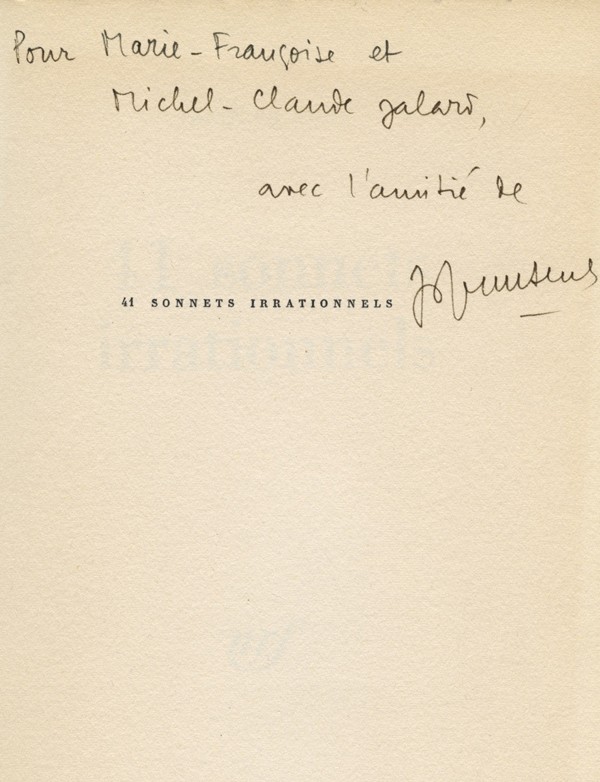 Pour Marie-Françoise et
Michel-Claude Jalard,
avec l'amitié de
41 SONNETS IRRATIONNELS
JBens